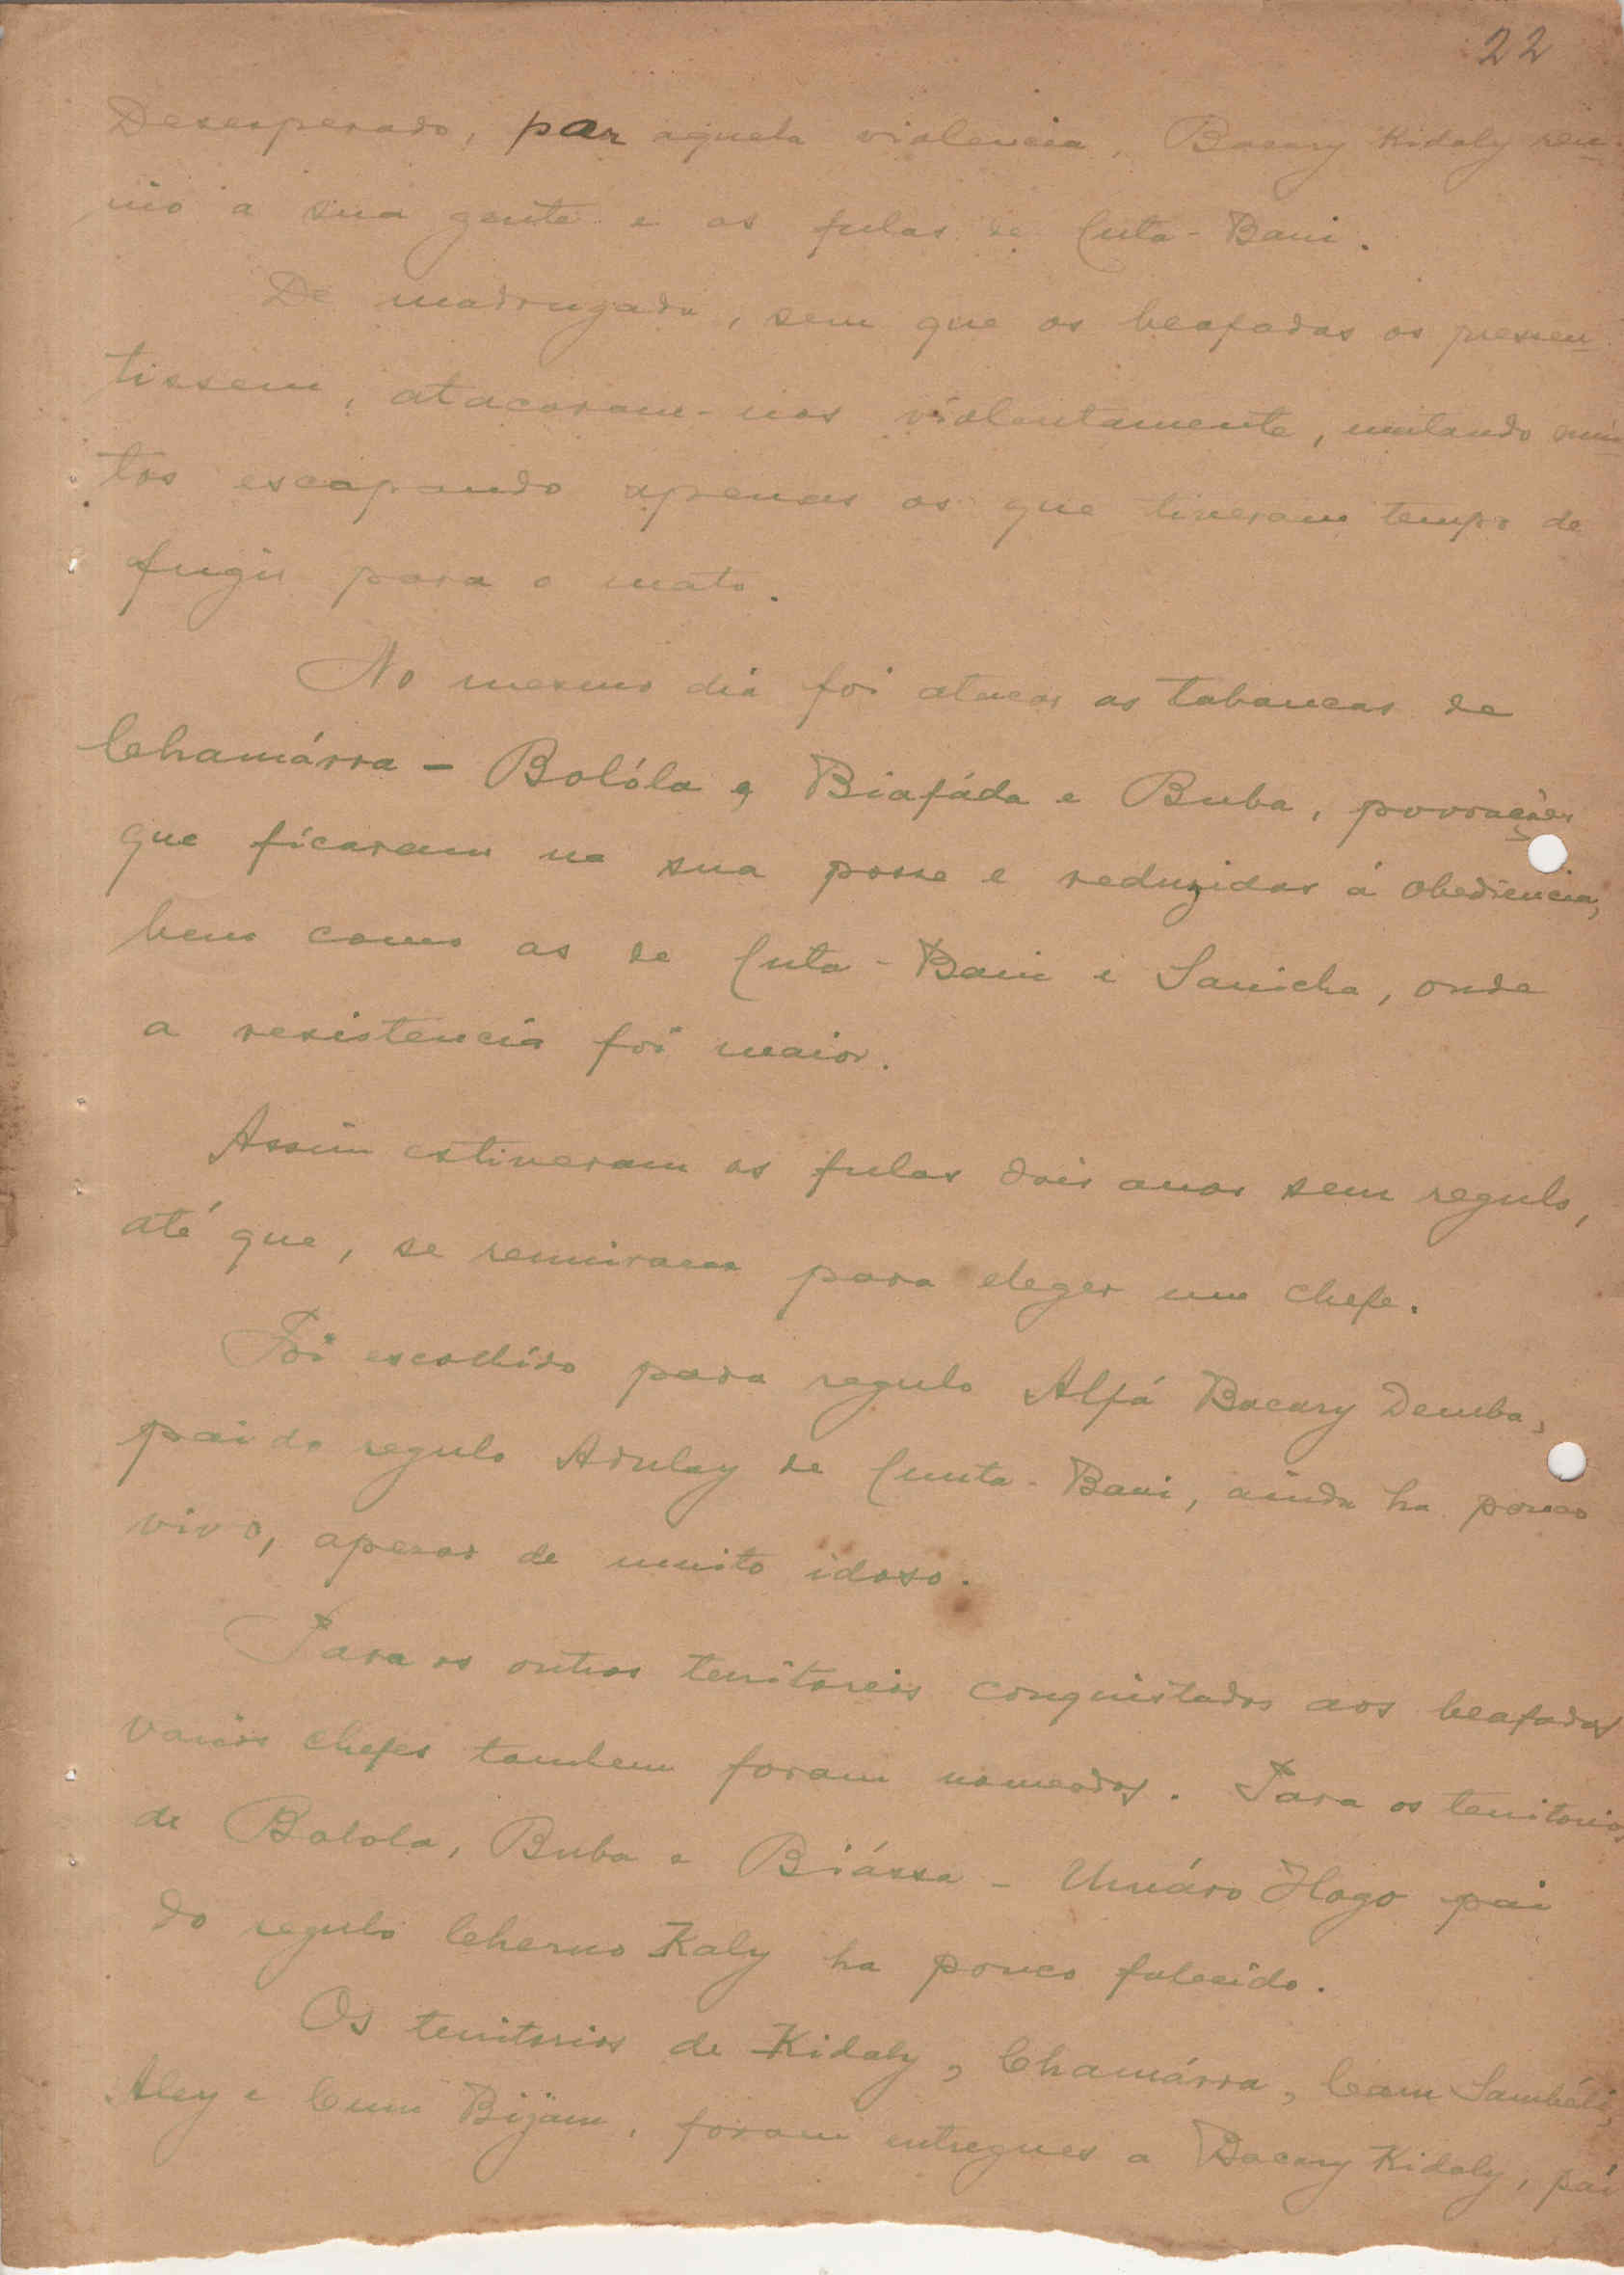 22
Desesperado, por aquela violencia, Bacary Kidaly reu-
nio a sua gente e os fulas de Cuta-Bani.
De madrugada, sem que os beafadas os pressen-
tissem, atacaram-nos violentamente, matando mui
tos escapando apenas os que tiveram tempo de
fugir para o mato.
No mesmo dia foi atacar as tabancas de
Chamárra - Bolóla e Biafáda e Buba, povoações
que ficaram na sua posse e reduzidas á obediencia,
bem como as de Cuta-Bani e Sanicha, onde
a resistencia foi maior.
Assim estiveram os fulas dois anos sem regulo,
até que, se reuniram para eleger um chefe.
Foi escolhido para regulo Alfá Bacary Demba,
pai do regulo Adulay de Cunta-Bani, ainda ha pouco
vivo, apezar de muito idoso.
Para os outros territoreis conquistados aos beafadas
varios chefes tambem foram nomeados. Para os territorios
de Bolola, Buba e Biássa - Umáro Hogo pai
do regulo Cherno Kaly ha pouco falecido.
Os territorios de Kidaly, Chamárra, Cam Sambéli,
Aley e Cum Bijam, foram entregues a Bacary Kidaly, pai